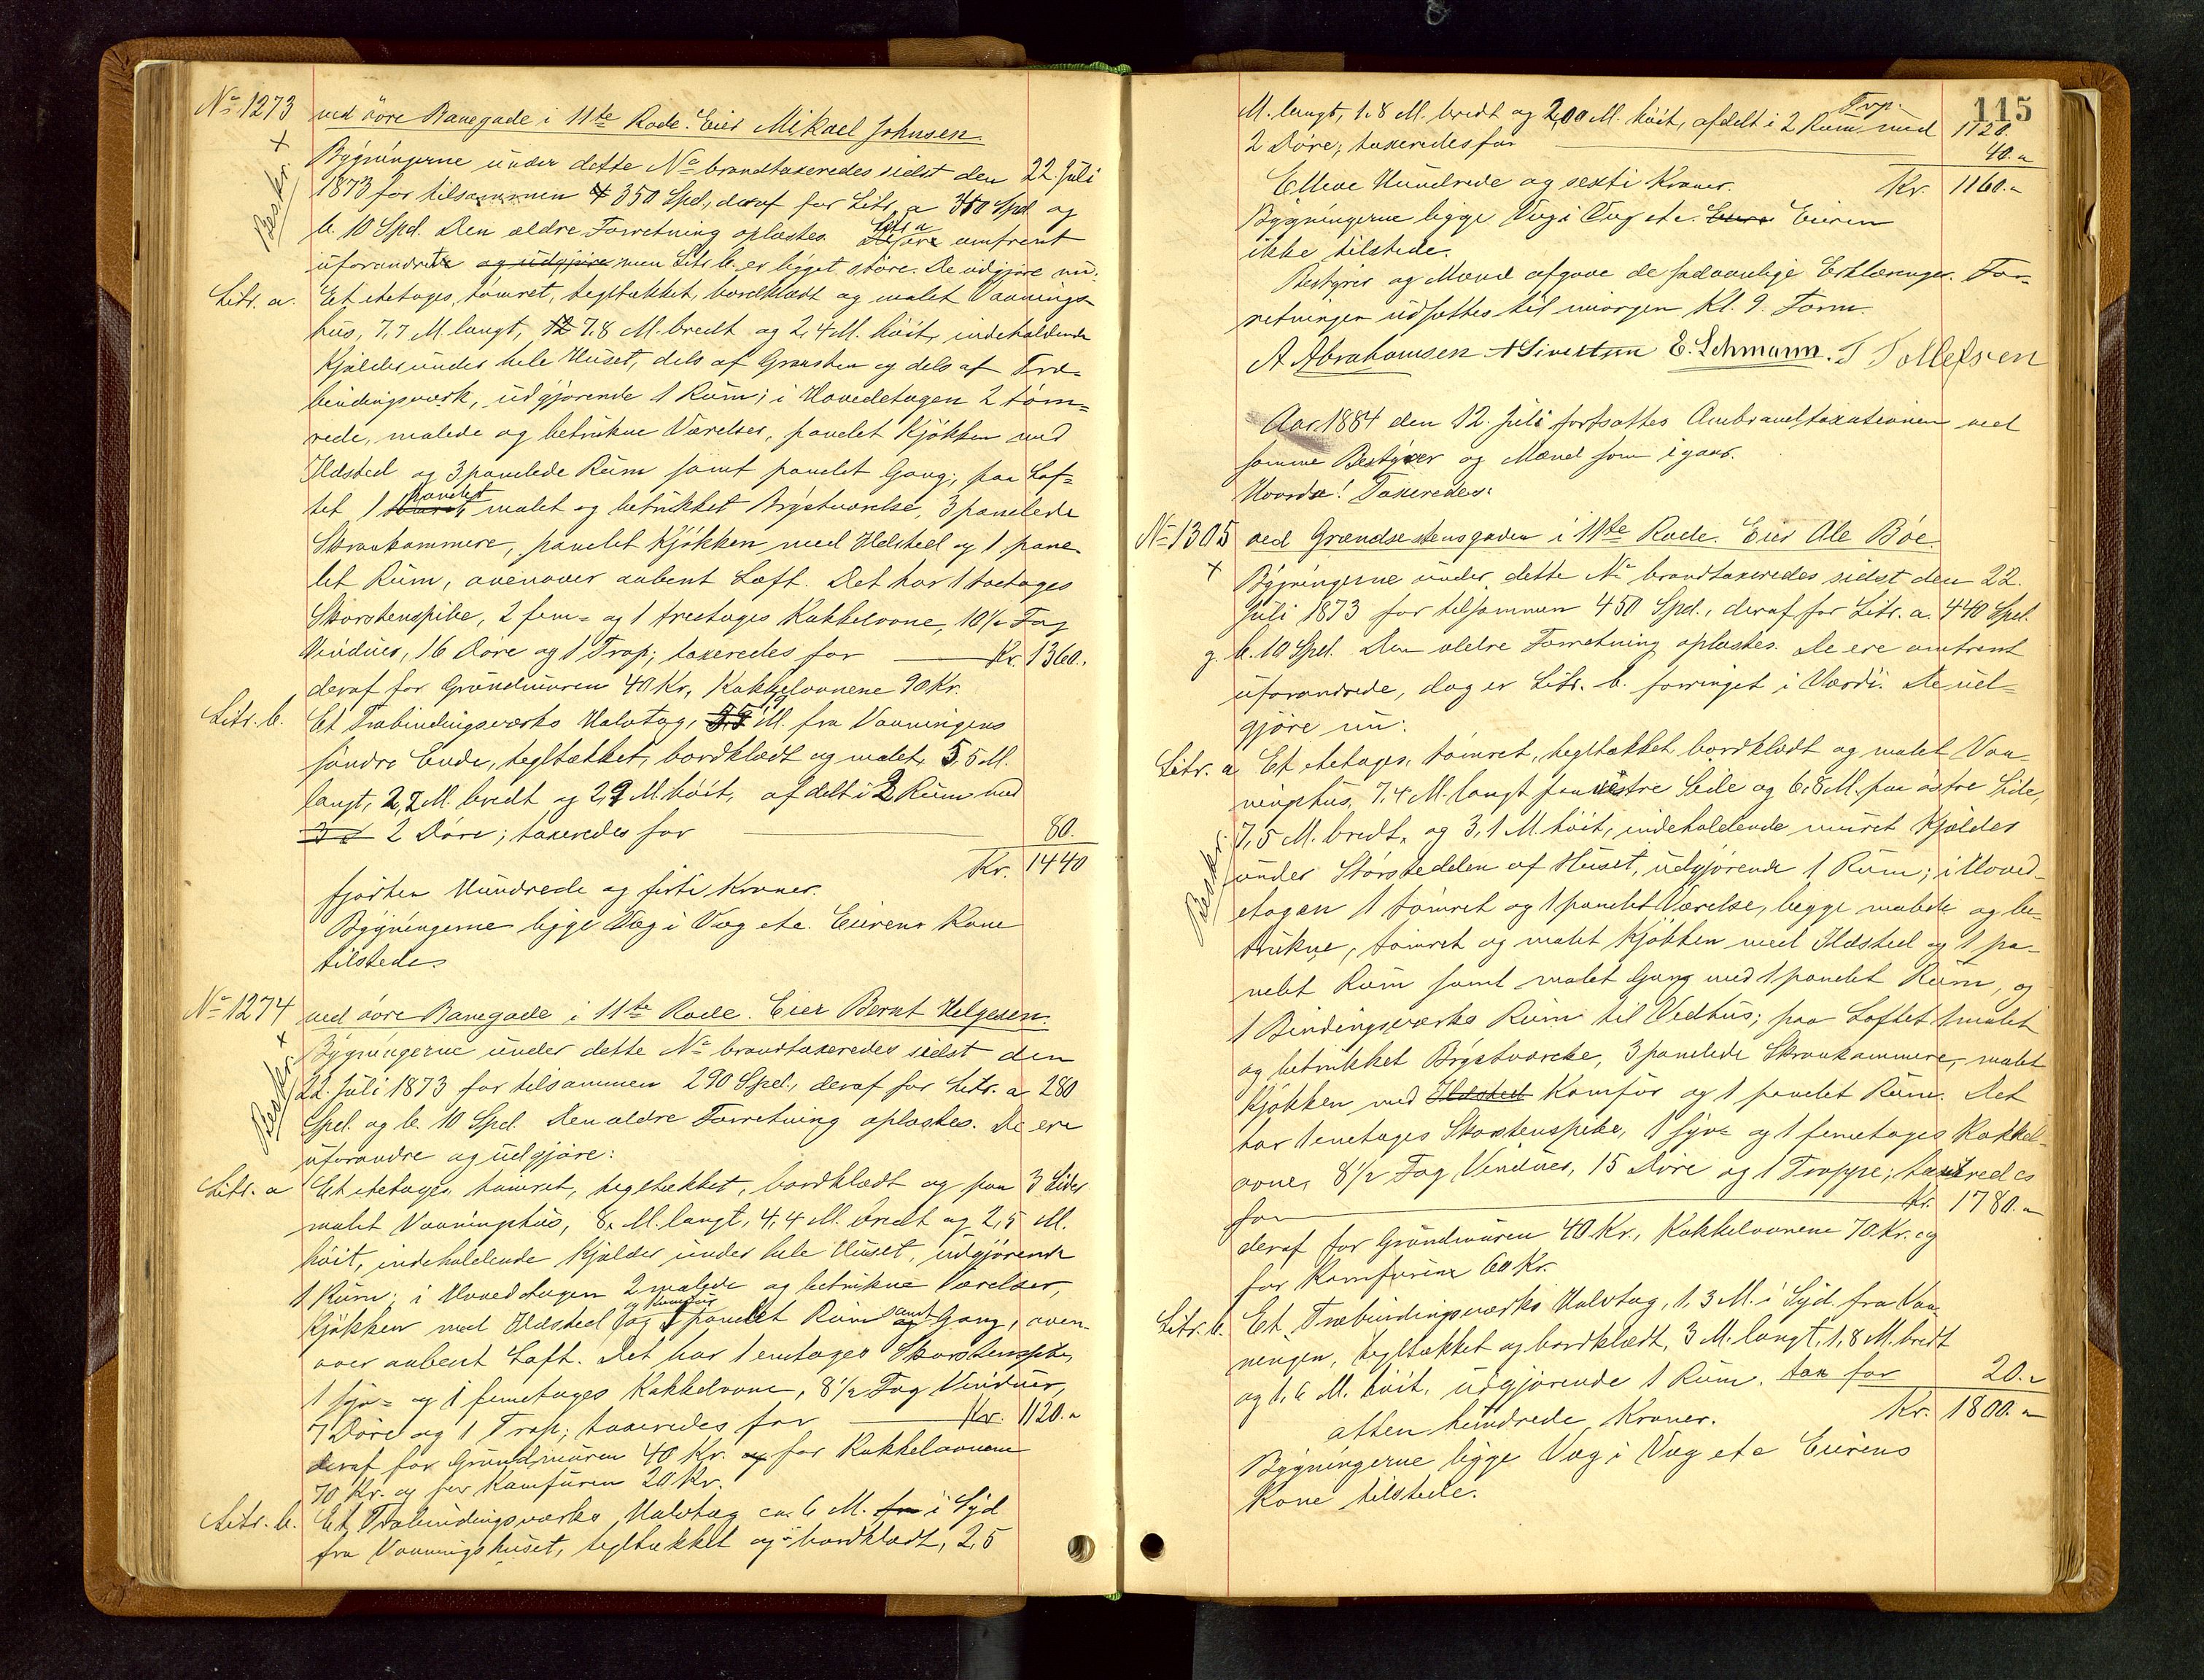 No 1273 ved övre Banegade i 11te Rode. Eier Mikael Johnsen.
Beskr. +
Bygningerne under dette No brandtaxeredes sidst den 22. Juli
1873 for tilsammen 350 Spd., deraf for Litr. a 340 Spd. og
b. 10 Spd. Den ældre Forretning oplæstes. Litr. a omtrent
uforandret og udgjöre men Litr. b. er bygget större. De udgjöre nu:
Litr. a. Et etetages, tömret, tegltækket, bordklædt og malet Vaanings-
hus, 7,7 M. langt, 7.8 M. bredt og 2,4 M. höit, indeholdende
Kjælder under hele Huset, dels af Graasten og dels af Træ-
bindingsværk, udgjörende 1 Rum; i Hovedetagen 2 töm-
rede, malede og betrukne Værelser, panelet Kjökken med
Ildsted og 3 panelede Rum samt panelet Gang; paa Lof-
tet 1 panelet, malet og betrukket Brystværelse, 3 panelede
Skraakammere, panelet Kjökken med Ildsted og 1 pane-
let Rum, ovenover aabent Loft. Det har 1 toetages
Skorstenspibe, 2 fem- og 1 treetages Kakkelovne, 10 1/2 Fag
Vinduer, 16 Döre og 1 Trap; taxeredes for Kr. 1360.
deraf for Grundmuren 40 Kr., Kakkelovnene 90 Kr.
Litr. b. Et Træbindingsværks Halvtag, M. fra Vaaningens
söndre Ende, tegltækket, bordklædt og malet, 5,5 M.
langt, 2,7 M. bredt og 2,2 M. höit, afdelt i 2 Rum med
2 Döre; taxeredes for 80.
Kr. 1440
fjorten Hundrede og firti Kroner.
Bygningerne ligge Væg i Væg etc. Eierens Kone
tilstede.
No 1274 ved övre Banegade i 11te Rode. Eier Bernt Helgesen.
Beskr. +
Bygningerne under dette No brandtaxeredes sidst den
22. Juli 1873 for tilsammen 290 Spd., deraf for Litr. a 280
Spd. og b. 10 Spd. Den ældre Forretning oplæstes. De ere
uforandre og udgjöre:
Litr. a Et etetages, tömret, tegltækket, bordklædt og paa 3 Sider
malet Vaaningshus, 8, M. langt, 4,4 M. bredt og 2,5 M.
höit, indeholdende Kjælder under hele Huset, udgjörende
1 Rum; i Hovedetagen 2 malede og betrukne Værelser,
Kjökken med Ildsted og Komfur og 1 panelet Rum samt Gang, oven-
over aabent Loft. Det har 1 enetages Skorstenspibe,
1 syv- og 1 femetages Kakkelovne, 8 1/2 Fag Vinduer,
7 Döre og 1 Trap; taxeredes for Kr. 1120.
deraf for Grundmuren 40 Kr. og for Kakkelovnene
70 Kr. og for Komfuren 20 Kr.
Litr. b. Et Træbindingsværks Halvtag ca. 6 M. fra i Syd
fra Vaaningshuset, tegltækket og bordklædt, 2,5
115
M. langt, 1.8 M. bredt og 2,00 M. höit, afdelt i 2 Rum med Trp. 1120.
2 Döre; taxeredes for 40.
Elleve Hundrede og sexti Kroner. Kr. 1160.
Bygningerne ligge Væg i Væg etc. Eieren
ikke tilstede.
Bestyrer og Mænd afgave de sædvanlige Erklæringer. For-
retningen udsattes til imorgen Kl. 9. Form.
A Abrahamsen A Sivertsen E. Lehmann. T Tollefsen
Aar 1884 den 12. Juli fortsattes Ombrandtaxationen ved
samme Bestyrer og Mænd som igaar.
Hvorda! Taxeredes:
No 1305 ved Grændsestensgaden i 11te Rode. Eier Ole Böe.
+
Bygningerne under dette No brandtaxeredes sidst den 22.
Juli 1873 for tilsammen 450 Spd., deraf for Litr. a. 440 Spd.
g. b. 10 Spd. Den ældre Forretning oplæstes. De ere omtrent
uforandrede, dog er Litr. b. forringet i Værdi. De ud-
gjöre nu:
Litr. a Et etetages, tömret, tegltækket, bordklædt og malet Vaa-
ningshus, 7,4 M. langt paa vestre Side og 6,8 M. paa östre Side,
7,5 M. bredt, og 3,1 M. höit, indeholdende muret Kjælder
Beskr.
under Störstedelen af Huset, udgjörende 1 Rum; i Hoved-
etagen 1 tömret og 1 panelet Værelse, begge malede og be-
trukne, tömret og malet Kjökken med Ildsted og 1 pa-
nelet Rum samt malet Gang med 1 panelet Rum, og
1 Bindingsværks Rum til Vedhus; paa Loftet 1 malet
og betrukket Brystværelse, 3 panelede Skraakammere, malet
Kjökken med Ildsted Komfur og 1 panelet Rum. Det
har 1 enetages Skorstenspibe, 1 syv- og 1 femetages Kakkel-
ovne, 8 1/2 Fag Vinduer, 15 Döre og 1 Trappe; taxeredes
for Kr. 1780.
deraf for Grundmuren 40 Kr., Kakkelovnene 70 Kr. og
for Komfuren 60 Kr.
Litr. b. Et Træbindingsværks Halvtag, 1,3 M. i Syd fra Vaa-
ningen, tegltækket og bordklædt, 3 M. langt, 1,8 M. bredt
og 1,6 M. höit, udgjörende 1 Rum. tax for 20.
atten hundrede Kroner. Kr. 1800.
Bygningerne ligge Væg i Væg etc Eierens
Kone tilstede.